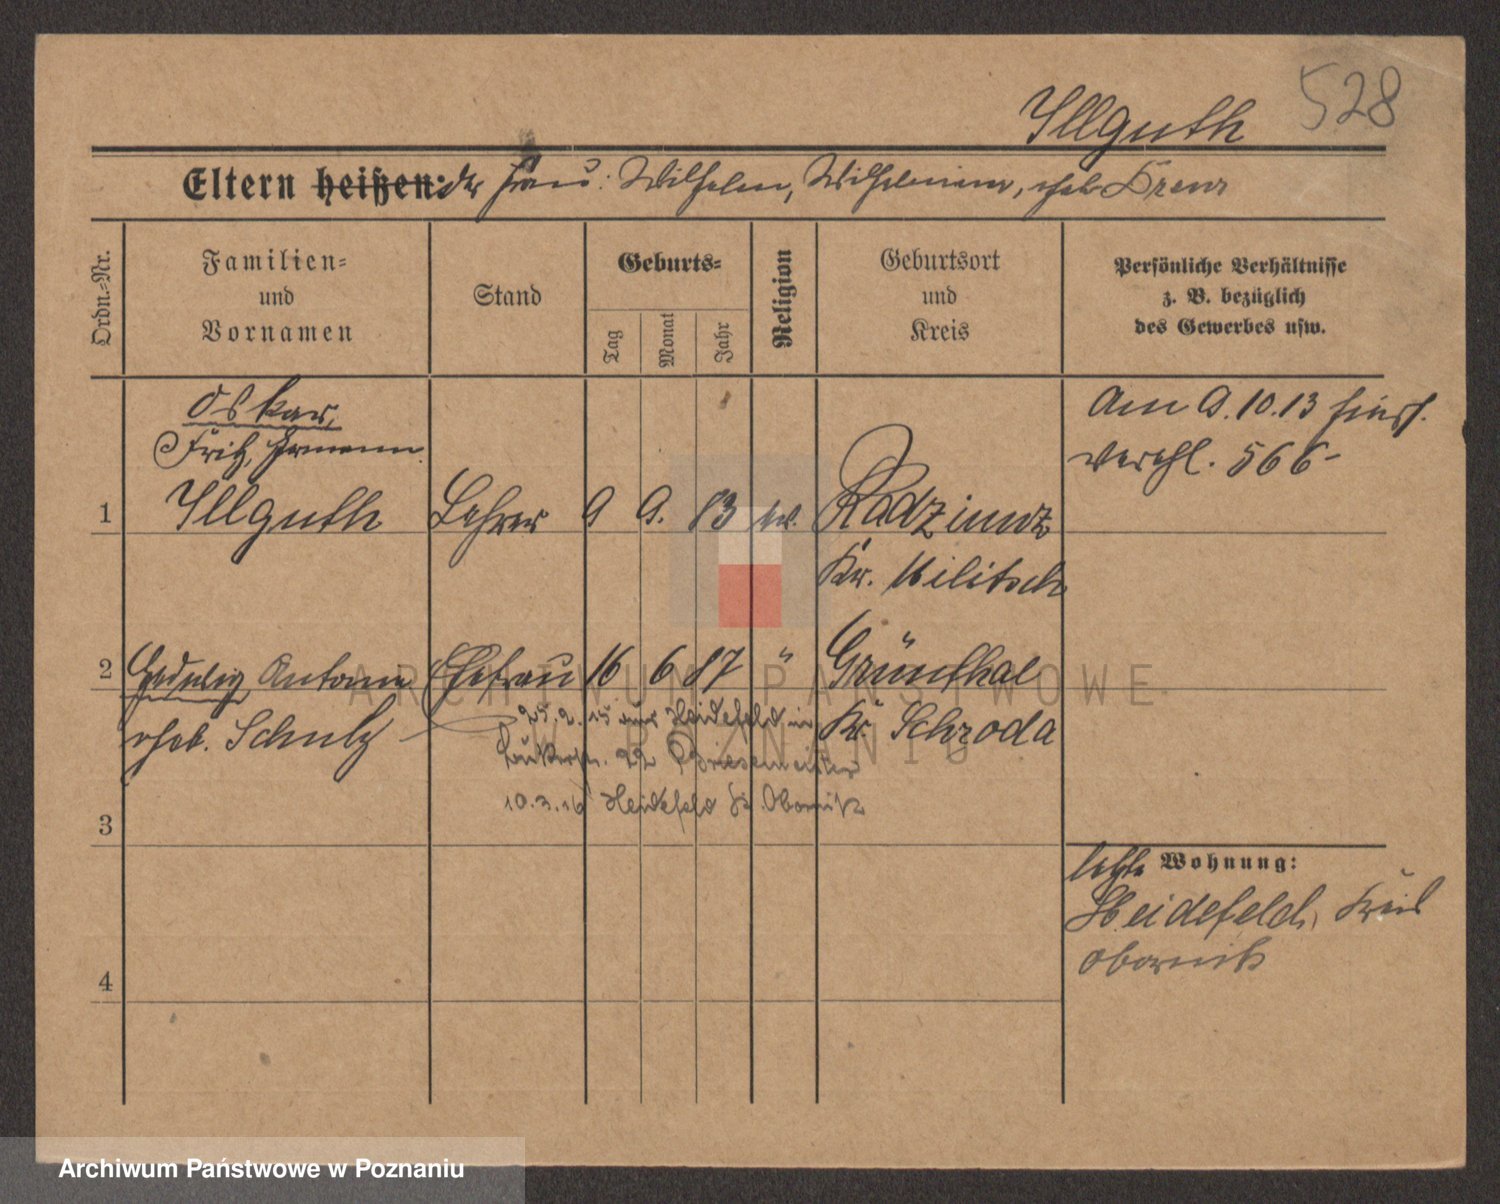 528
Illguth
Eltern heißen: der Frau: Wilhelm, Wilhelmine, geb.
Ordn.-Nr.
Familien-
und
Vornamen
Stand
Geburts-
Tag
Monat
Jahr
Religion
Geburtsort
und
Kreis
Persönliche Verhältnisse
z. B. bezüglich
des Gewerbes usw.
Oskar,
Fritz, Hermann
1 Illguth Lehrer 9 9. 83 ev. Radziunz
Kr. Militsch
Am 9.10.13 hier
verehl. 566-
2 Hedwig Ehefrau 16 6 87 " Grünthal
geb. Schulz
Kr. Schroda
25.2.15 aus Heidefeld in
22 Briesemeister
10.3.16 Heidefeld Kr. Obornik
3
4
letzte Wohnung:
Heidefeld, Kreis
Obornik
ARCHIWUM PAŃSTWOWE
W POZNANIU
Archiwum Państwowe w Poznaniu